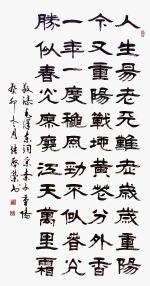 人生易老天難老歲歲重陽
今又重陽戰地黃花分外香
一年一度秋風勁不似春光
勝似春光寥廓江天萬里霜
敬錄毛澤東詞采桑子重陽
癸卯冬月